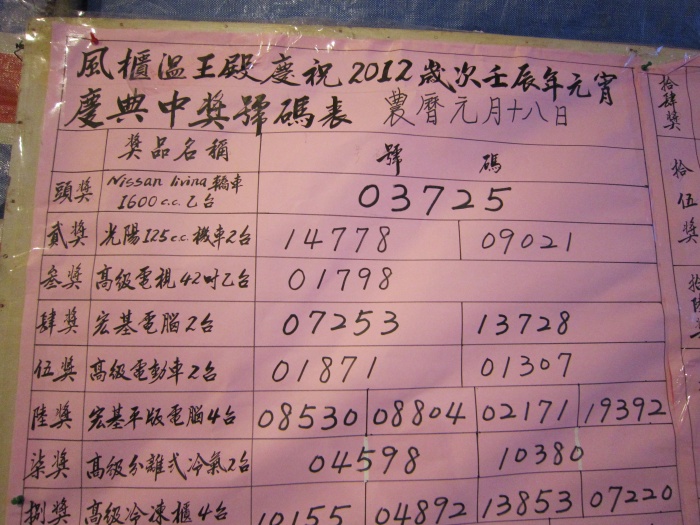 風櫃溫王殿慶祝2012歲次壬辰年元宵
慶典中獎號碼表 農曆元月十八日
獎品名稱 號 碼
頭獎 Nissan livina 轎車 1600c.c.乙台 03725
貳獎 光陽125c.c.機車2台 14778 09021
叁獎 高級電視42吋乙台 01798
肆獎 宏基電腦2台 07253 13728
伍獎 高級電動車2台 01871 01307
陸獎 宏基平版電腦4台 08530 08804 02171 19392
柒獎 高級分離式冷氣2台 04598 10380
捌獎 高級冷凍櫃4台 10155 04892 13853 07220
拾肆獎
拾伍獎